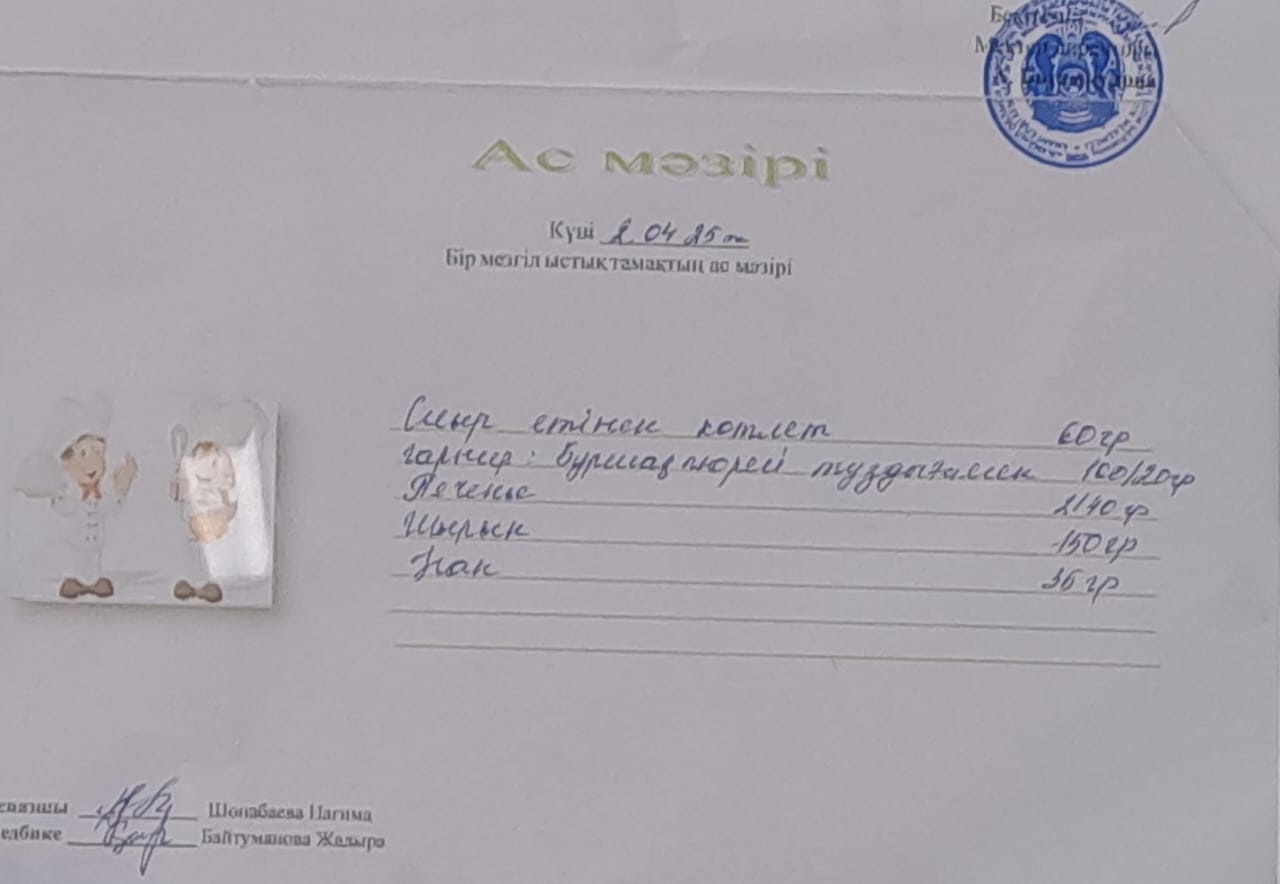 Ас мәзірі
Күні 2 04 25 ж
Бір мезгіл ыстық тамақтың ас мәзірі
Сиыр етінен котлет 60 гр
гарнир: Бұршақ пюресі тұздықпен 100/20гр
Печенье 2/40 гр
Шырын 150 гр
Нан 36 гр
Шонабаева Нагима
Байтуманова Жадыра